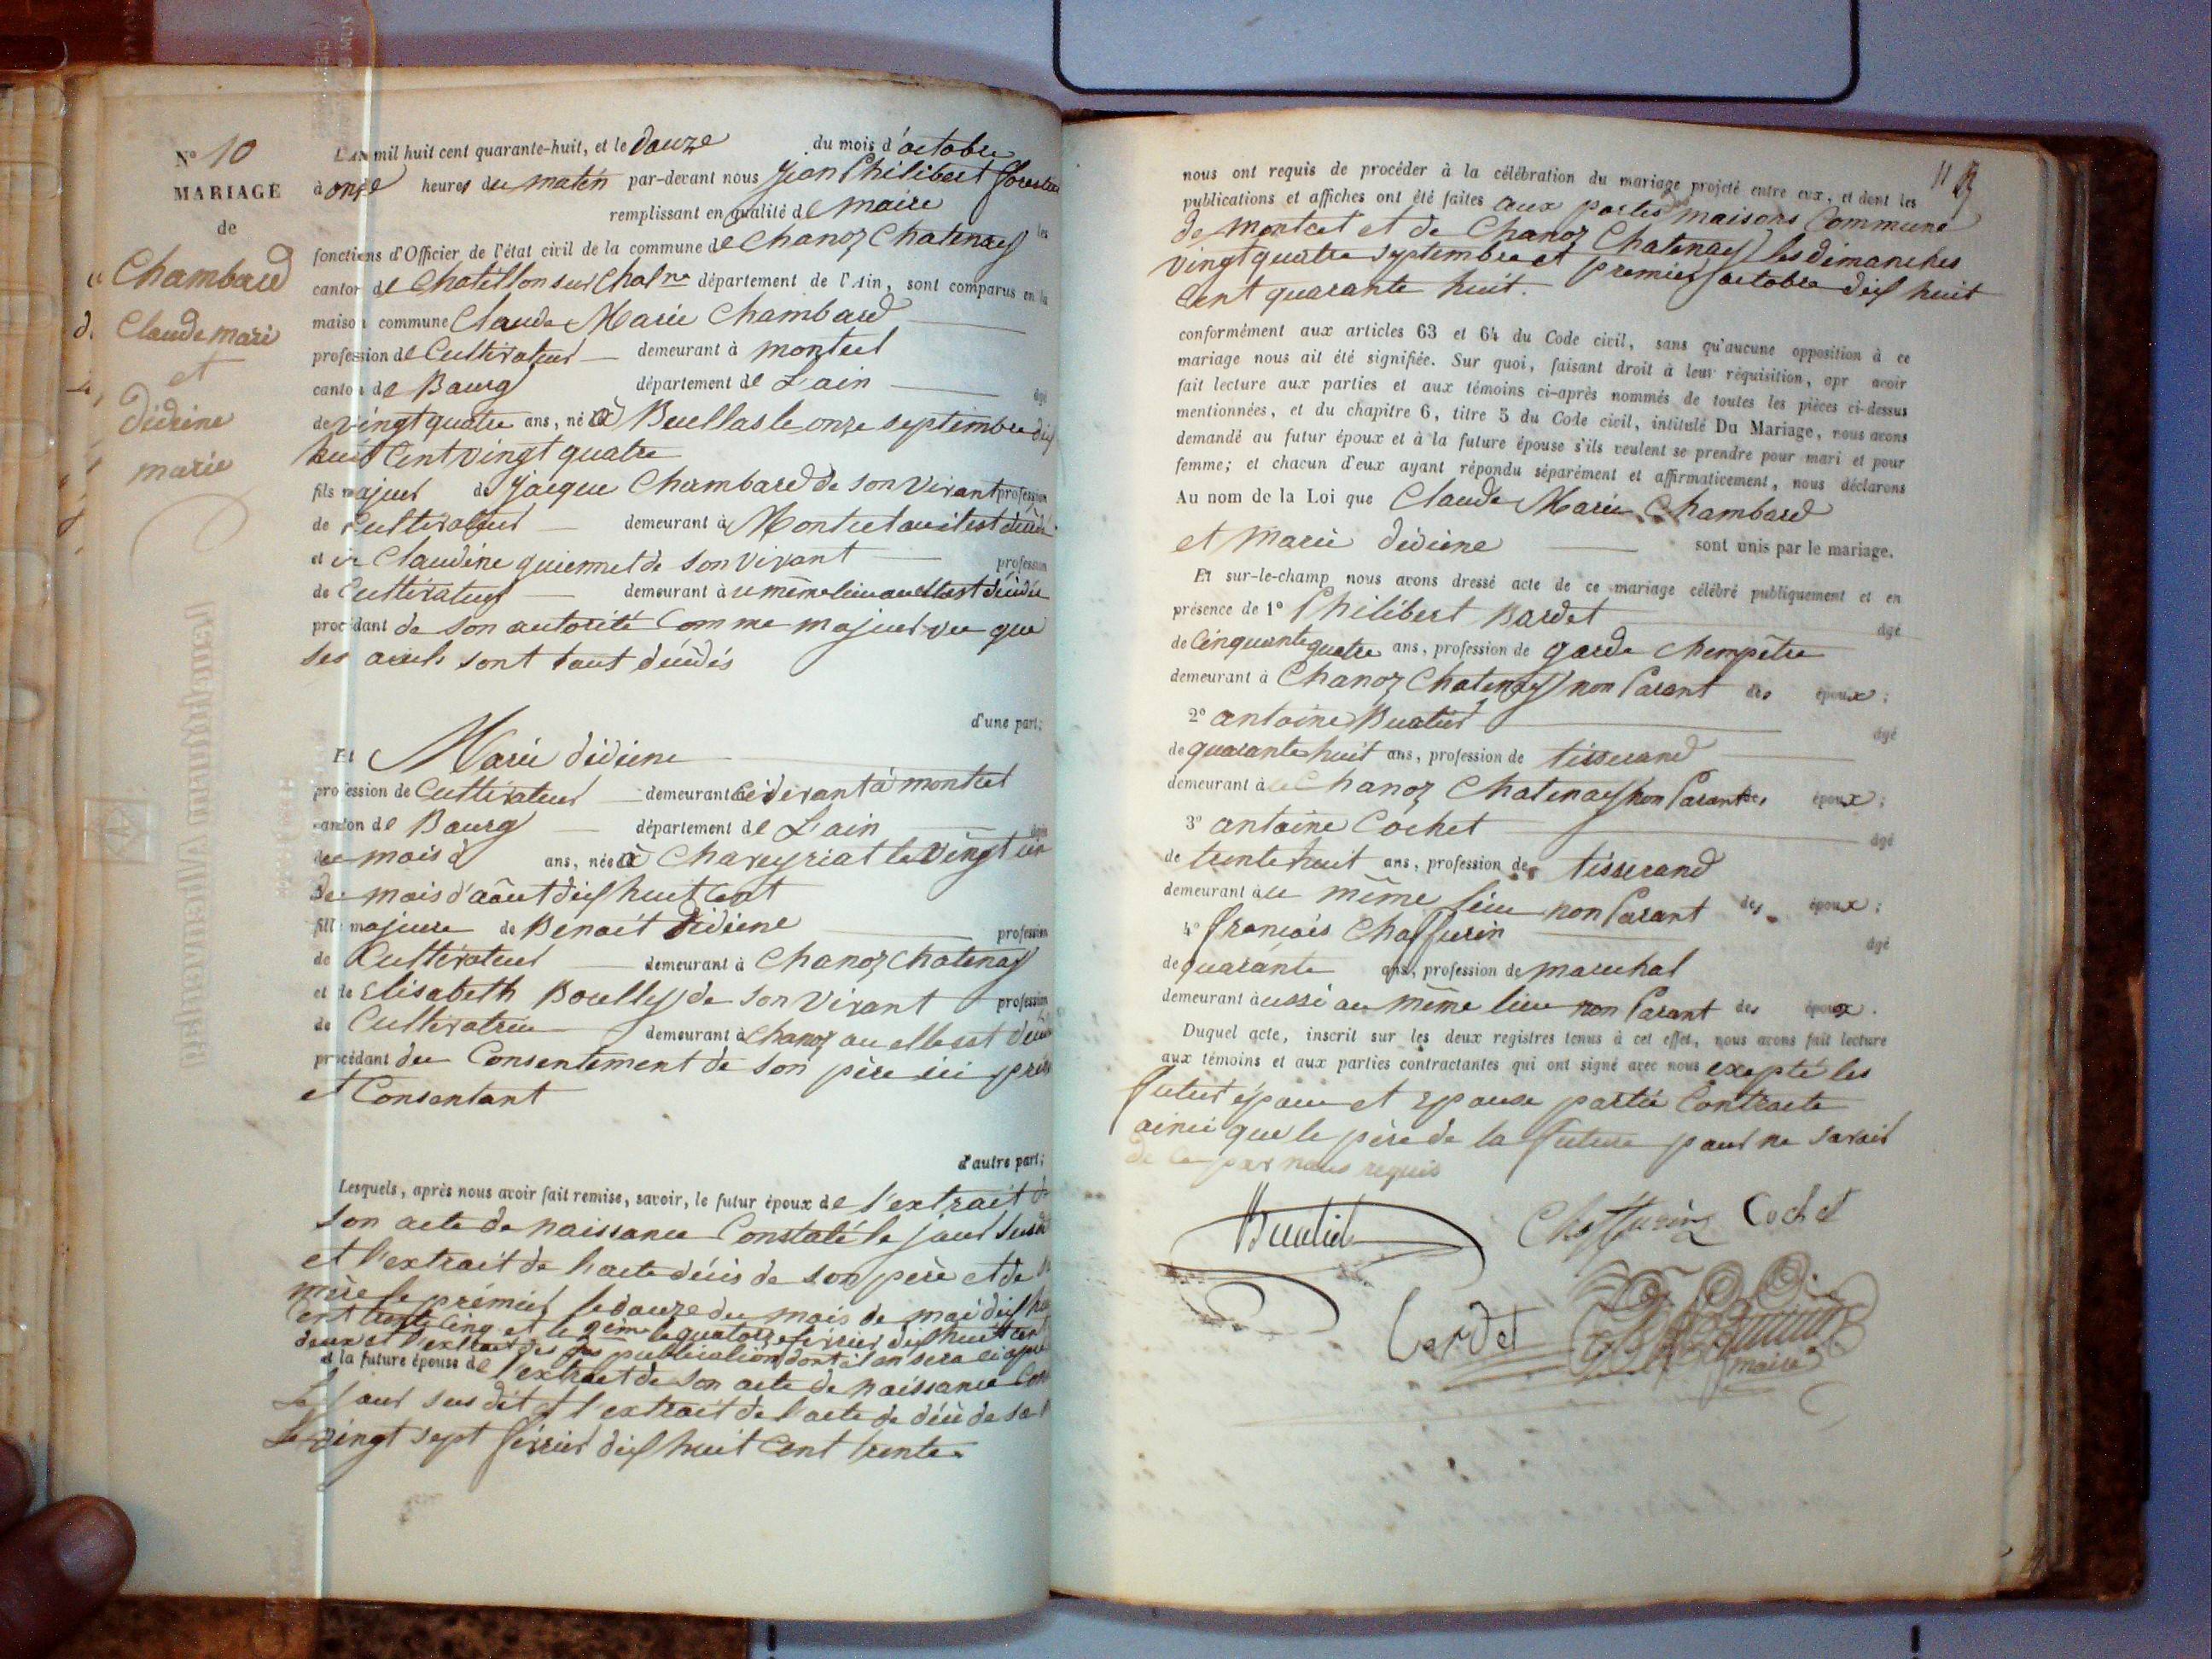 N° 10
MARIAGE
de
Chambard
Claude marie
et
didiène
marie
L'An mil huit cent quarante-huit, et le douze du mois d'octobre
à onze heures du matin par-devant nous Jean Philibert
remplissant en qualité de maire les
fonctions d'Officier de l'état civil de la commune de Chanoz Chatenay
canton de Chatillon sur Chalne département de l'Ain, sont comparus en la
maison commune Claude Marie Chambard
profession de Cultivateur demeurant à montcet
canton de Bourg département de L'ain âgé
de vingt quatre ans, né à Buellas le onze septembre dix
huit Cent vingt quatre
fils majeur de Jacque Chambard de son vivant profession
de Cultivateur demeurant à Montcet ou il est décédé
et de Claudine quiennet de son vivant profession
de Cultivateur demeurant à ce même lieu ou elle est décédée
procédant de son autorité Comme majeur vu que
ses aieuls sont tout décédés
d'une part;
Et Marie didiène
profession de Cultivateur demeurant ci devant à montcet
canton de Bourg département de L'ain âgée
du mois d ans, née à Chaveyriat le vingt un
du mois d'août dix huit cent
fille majeure de Benoit didiène profession
de Cultivateur demeurant à Chanoz Chatenay
et de Elisabeth Boully de son vivant profession
de Cultivatrice demeurant à Chanoz ou elle est
procédant du Consentement de son père ici
et Consentant
d'autre part;
Lesquels, après nous avoir fait remise, savoir, le futur époux de l'extrait de
son acte de naissance Constaté le jour
et l'extrait de l'acte décès de son père et de
mère le prémier le douze du mois de mai dix
cent trente cinq et le 2ème le quatorze février dix huit cent
deux et l'extrait des publication dont il en sera ci après
et la future épouse de l'extrait de son acte de naissance
le jour sus dit et l'extrait de l'acte de décè de sa
le vingt sept février dix huit Cent trente
nous ont requis de procéder à la célébration du mariage projeté entre eux, et dont les
publications et affiches ont été faites aux portes des maisons Commune
de montcet et de Chanoz Chatenay les dimanches
vingt quatre septembre et premier octobre dix huit
Cent quarante huit.
conformément aux articles 63 et 64 du Code civil, sans qu'aucune opposition à ce
mariage nous ait été signifiée. Sur quoi, faisant droit à leur réquisition, apr avoir
fait lecture aux parties et aux témoins ci-après nommés de toutes les pièces ci-dessus
mentionnées, et du chapitre 6, titre 5 du Code civil, intitulé Du Mariage, nous avons
demandé au futur époux et à la future épouse s'ils veulent se prendre pour mari et pour
femme; et chacun d'eux ayant répondu séparément et affirmativement, nous déclarons
Au nom de la Loi que Claude Marie Chambard
et Marie didiène sont unis par le mariage.
Et sur-le-champ nous avons dressé acte de ce mariage célébré publiquement et en
présence de 1° Philibert Bardet âgé
de Cinquante quatre ans, profession de garde Chempêtre
demeurant à Chanoz Chatenay non Parant des époux;
2° antoine Buatier âgé
de quarante huit ans, profession de tisserand
demeurant à Chanoz Chatenay non Parant des époux;
3° antoine Cochet âgé
de trente huit ans, profession de tisserand
demeurant à ce même lieu non Parant des époux;
4° François Chaffurin âgé
de quarante ans, profession de marechal
demeurant à aussi au même lieu non Parant des époux.
Duquel acte, inscrit sur les deux registres tenus à cet effet, nous avons fait lecture
aux témoins et aux parties contractantes qui ont signé avec nous exepté les
futur époux et epouse partie Contracte
ainci que le père de la future pour ne savoir
de ce par nous requis
Buatier Chaffurin Cochet
Bardet
maire